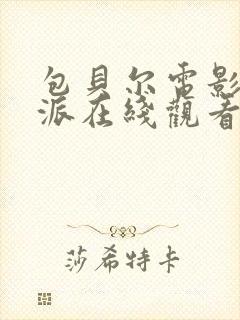 包貝尔電影
派在綫觀看
莎希特卡